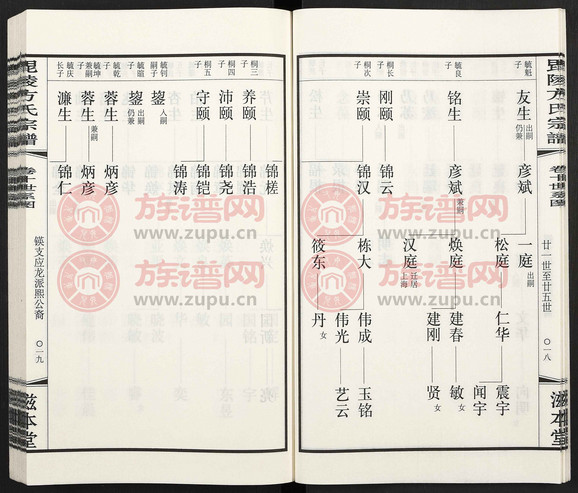 毗陵方氏宗譜
卷
世系图
廿一世至廿五世
〇一八
滋本堂
毓魁子
友生 出嗣仍兼
彦斌
一庭 出嗣
松庭
仁华
震宇
闻宇
毓良子
铭生
彦斌 兼嗣
焕庭
建春
敏 女
建刚
贤 女
汉庭 迁居上海
桐长子
刚颐
锦云
桐次子
崇颐
锦汉
栋大
伟成
玉铭
伟光
艺云
筱东
丹 女
桐三子
养颐
锦槎
锦浩
桐四子
沛颐
锦尧
桐五子
守颐
锦铠
锦涛
毓钊嗣子
鋆 入嗣
毓暄子
鋆 出嗣仍兼
毓乾子
蓉生
炳彦
毓坤兼嗣子
蓉生 兼嗣
炳彦
毓庆长子
濂生
锦仁
毗陵方氏宗譜
卷
世系图
镁支应龙派熙公裔
〇一九
滋本堂
族谱网
www.zupu.cn
族谱网
www.zupu.cn
族谱网
www.zupu.cn
族谱网
www.zupu.cn